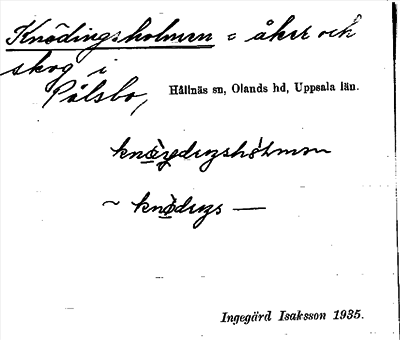 Knödingsholmen = åker och
skog i
Pålsbo,
Hållnäs sn, Olands hd, Uppsala län.
~
Ingegärd Isaksson 1935.